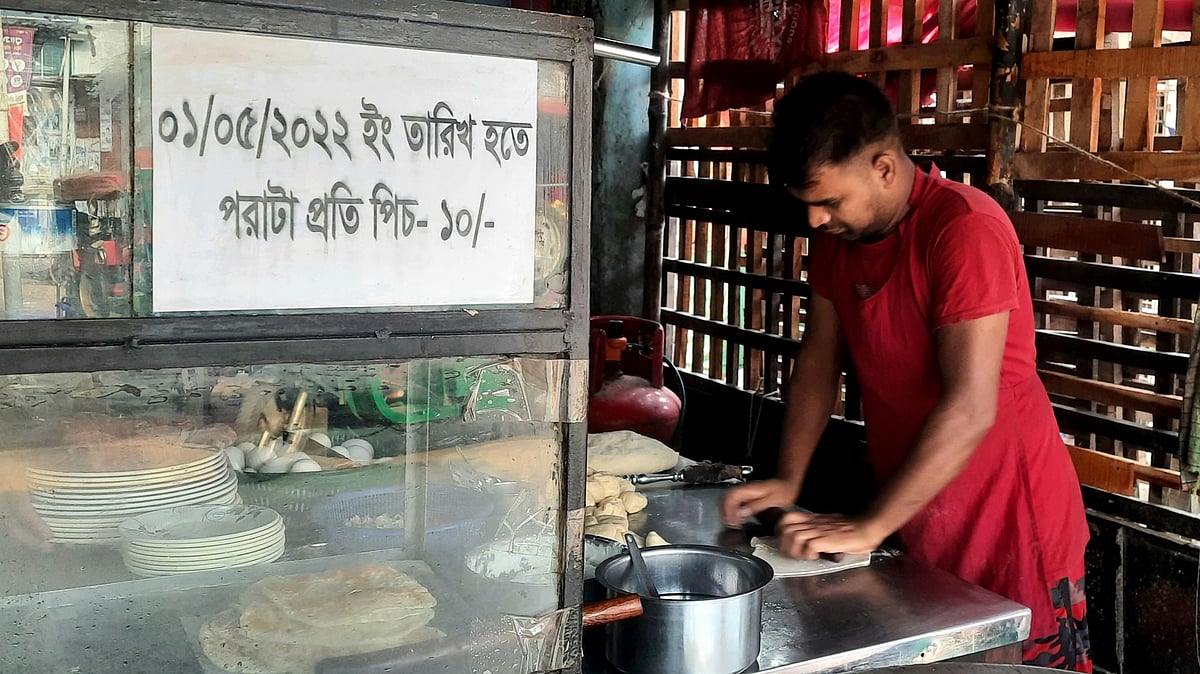 ০১/০৫/২০২২ ইং তারিখ হতে
পরাটা প্রতি পিচ- ১০/-